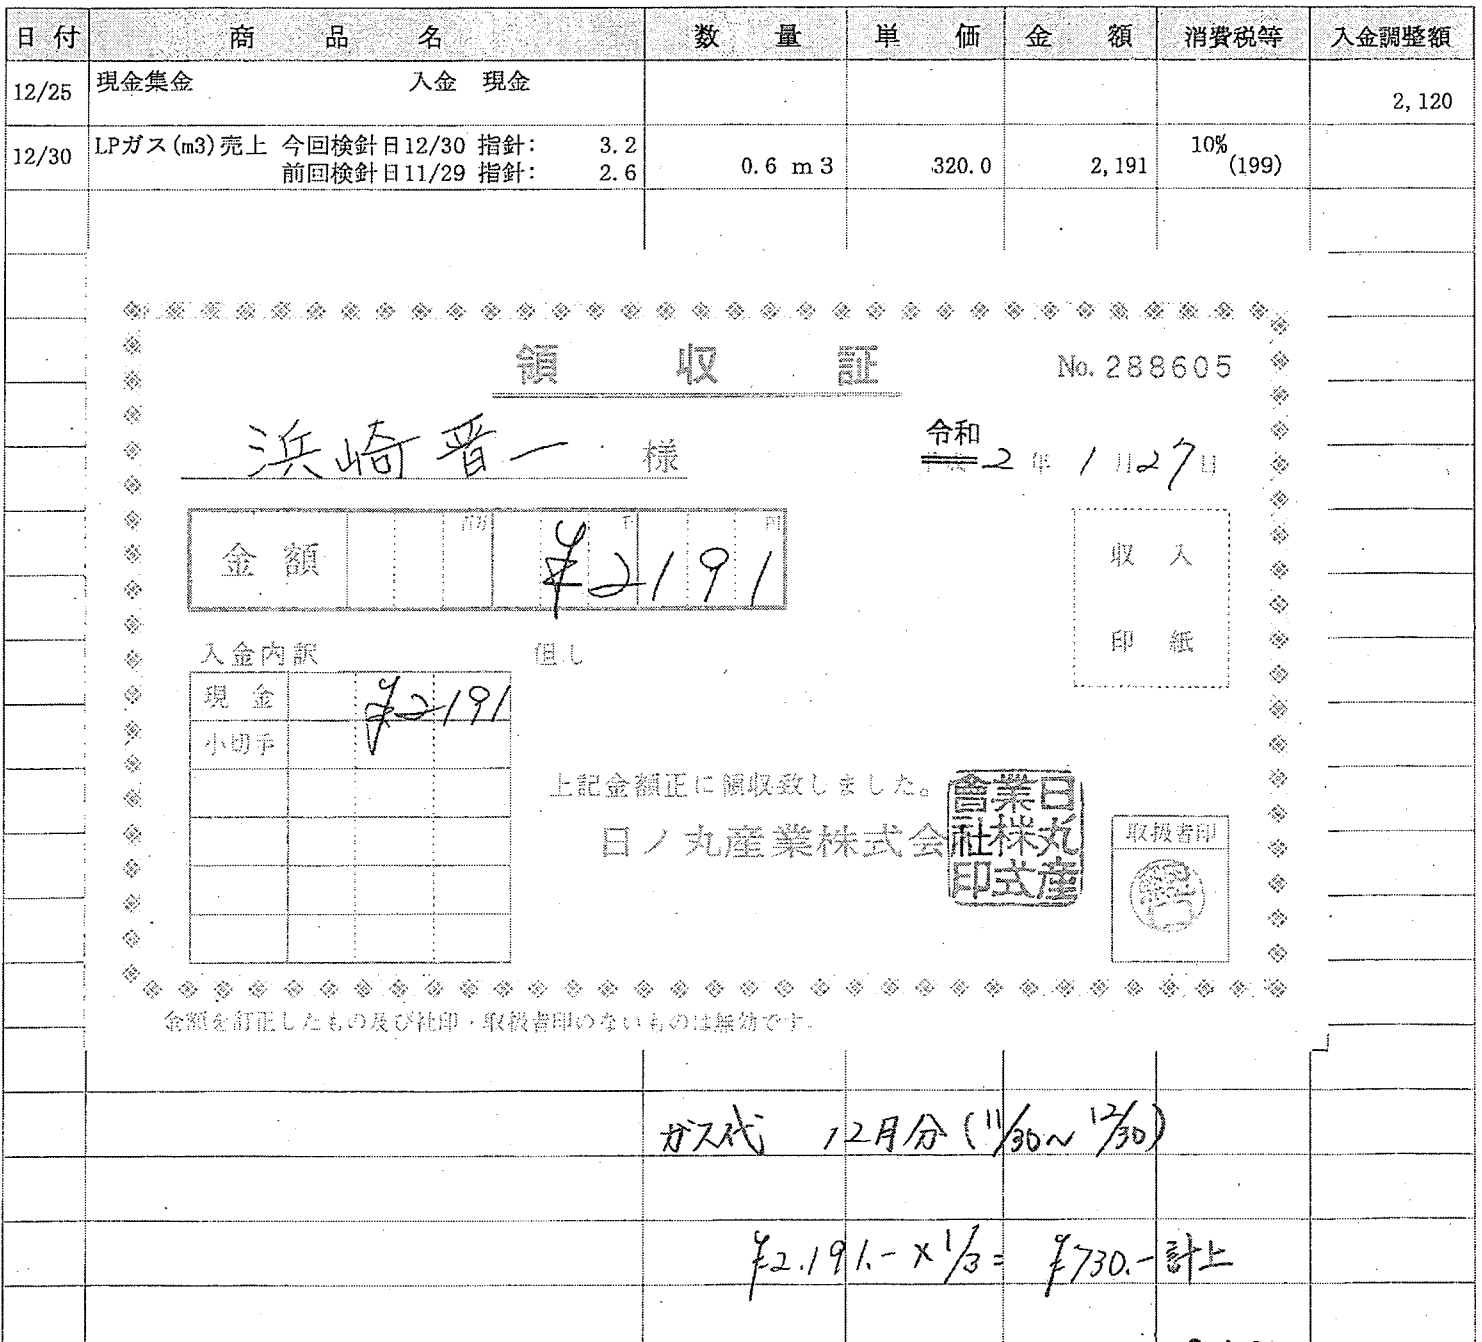 日付 商品名 数量 単価 金額 消費税等 入金調整額
12/25 現金集金 入金 現金 2,120
12/30 LPガス(m3)売上 今回検針日12/30 指針: 3.2 0.6 m3 320.0 2,191 10% (199)
前回検針日11/29 指針: 2.6
領収証 No. 288605
浜崎晋一 様 令和 2年1月27日
金額 百万 千 円 ¥2191
収入
印紙
入金内訳 但し
現金 ¥2191
小切手
上記金額正に領収致しました。
日ノ丸産業株式会
日丸産業株式會社印
取扱者印
金額を訂正したもの及び社印・取扱者印のないものは無効です。
ガス代 12月分(11/30~12/30)
¥2.191.-×1/3= ¥730.-計上